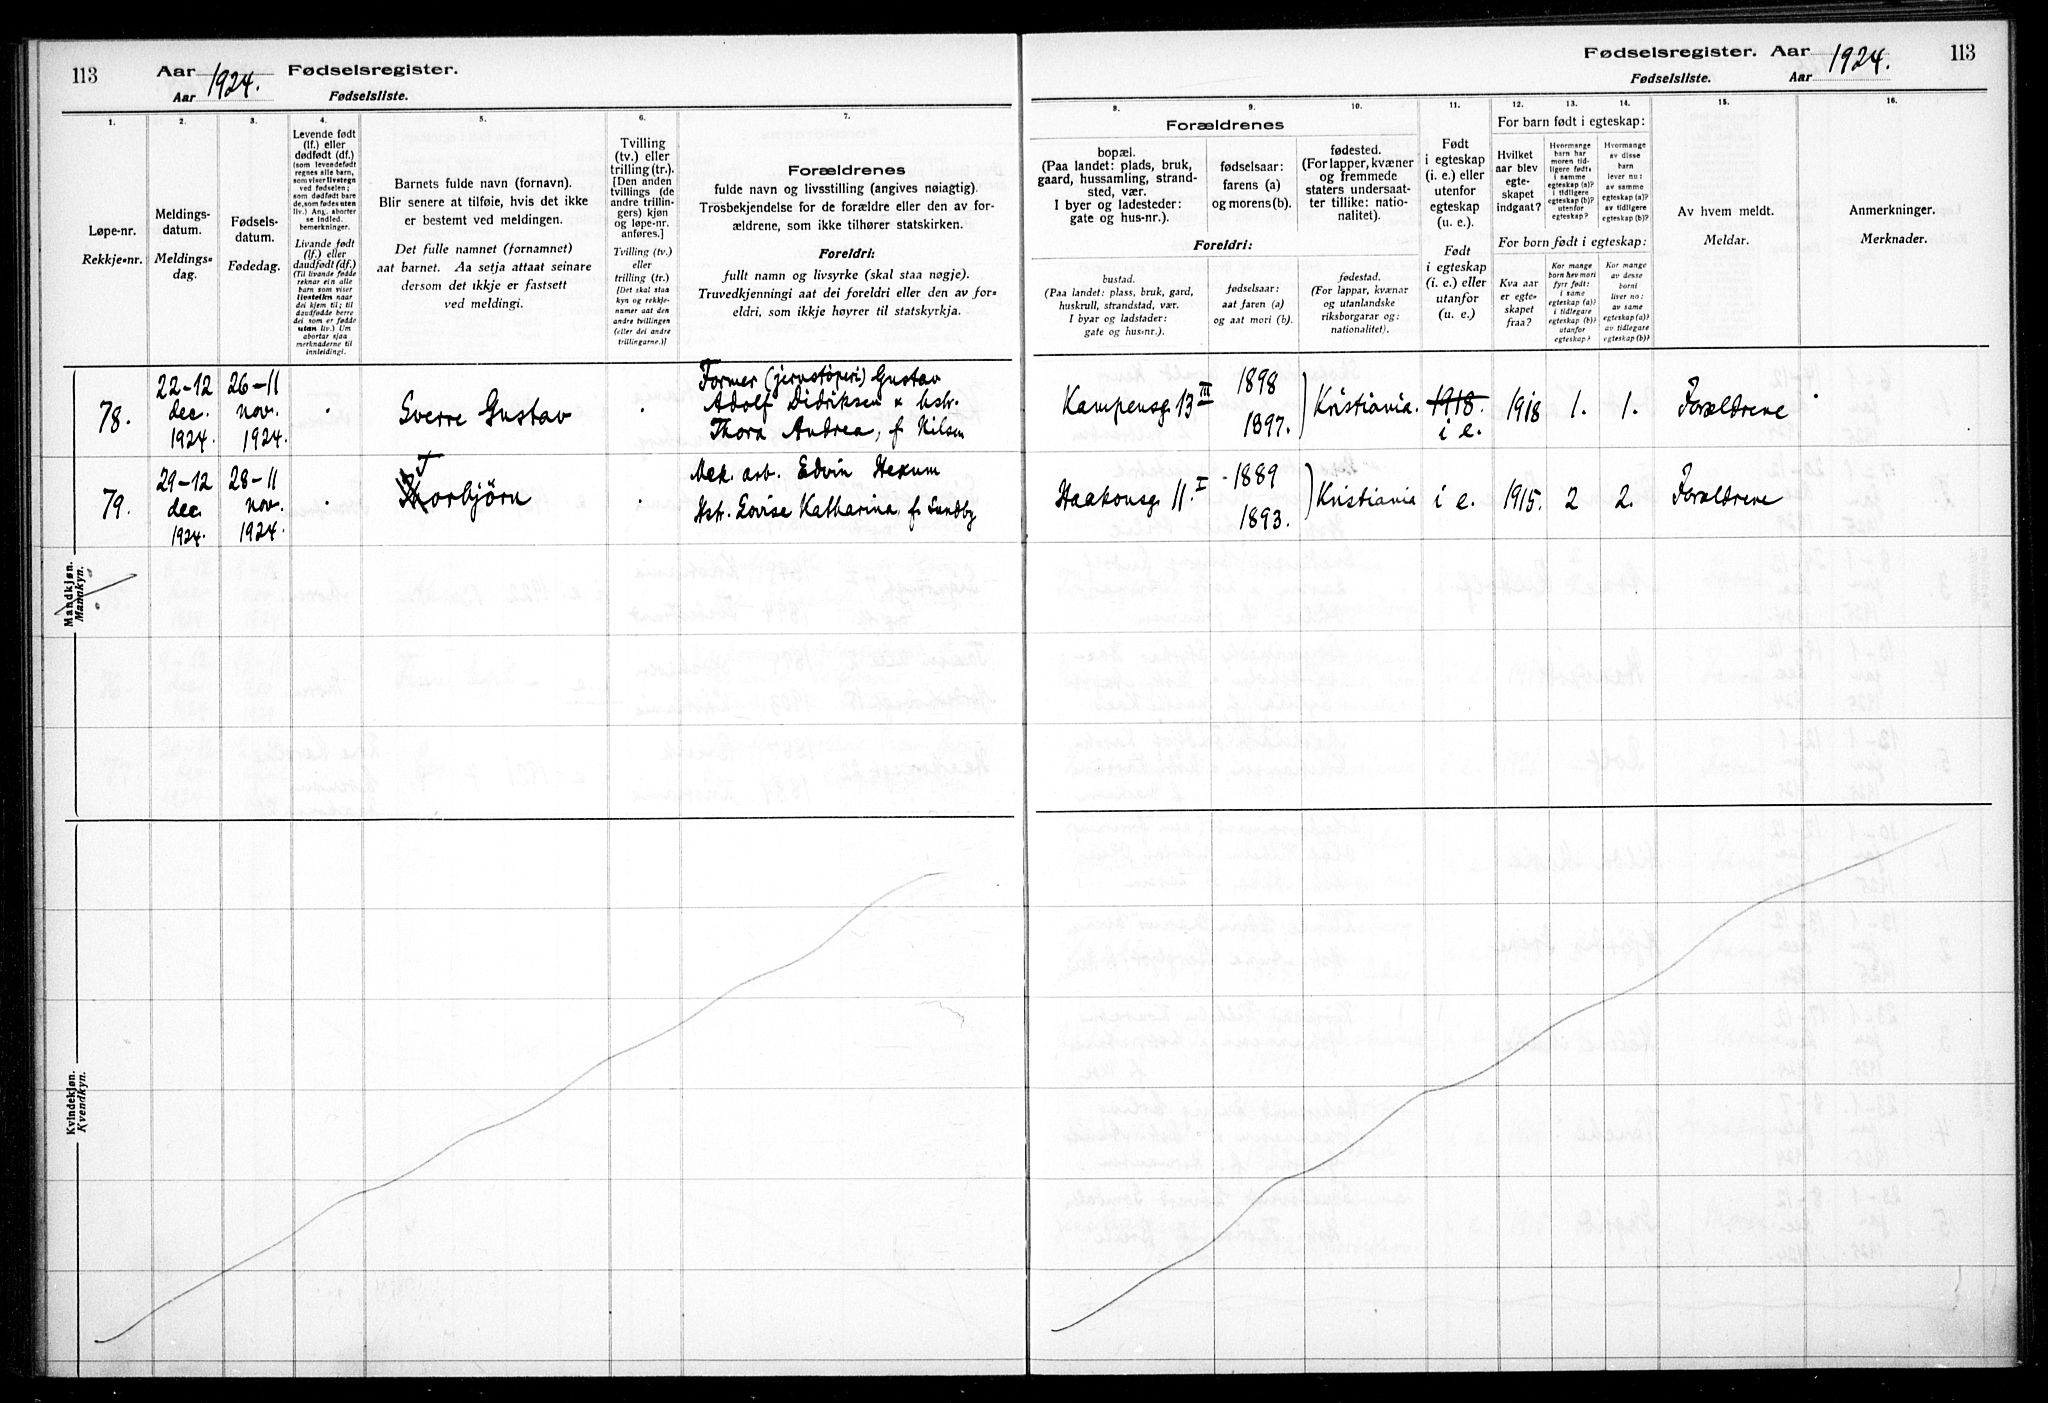 113
Aar 1924. Fødselsregister.
Aar Fødselsliste.
1.
2.
3.
4.
5.
6.
7.
Løpe-nr.
Rekkje-nr.
Meldings-
datum.
Meldings-
dag.
Fødsels-
datum.
Fødedag.
Levende født
(lf.) eller
dødfødt (df.)
(som levendefødt
regnes alle barn,
som viser livstegn
ved fødselen;
som dødfødt bare
de, som fødes uten
liv.) Ang. aborter
se indled.
bemerkninger.
Livande født
(lf.) eller
daudfødt (df.)
(Til livande fødde
reknar ein alle
barn som viser
livsteikn naar
dei kjem til; til
daudfødde berre
dei som er fødde
utan liv.) Um
abortar sjaa
merknaderne til
innleidingi.
Barnets fulde navn (fornavn).
Blir senere at tilføie, hvis det ikke
er bestemt ved meldingen.
Det fulle namnet (fornamnet)
aat barnet. Aa setja attaat seinare
dersom det ikkje er fastsett
ved meldingi.
Tvilling
(tv.) eller
trilling (tr.).
[Den anden
tvillings (de
andre trillin-
gers) kjøn
og løpe-nr.
anføres.]
Tvilling (tv.)
eller
trilling (tr.)
[Det skal staa
kyn og rekkje-
numer aat den
andre tvillingen
(eller dei andre
trillingarne.)]
Forældrenes
fulde navn og livsstilling (angives nøiagtig).
Trosbekjendelse for de forældre eller den av for-
ældrene, som ikke tilhører statskirken.
Foreldri:
fullt namn og livsyrke (skal staa nøgje).
Truvedkjenningi aat dei foreldri eller den av for-
eldri, som ikkje høyrer til statskyrkja.
78.
22-12
dec.
1924.
26-11
nov.
1924.
Sverre Gustav
Former (jernstøperi) Gustav
Adolf Didriksen & hstr.
Thora Andrea, f. Nilsen
79.
29-12
dec.
1924.
28-11
nov.
1924.
Torbjörn
Mek. arb. Edvin Hexum
Hstr. Lovise Katharina, f. Sundby
Mandkjøn.
Mannkyn.
Kvindekjøn.
Kvendkyn.
Fødselsregister. Aar 1924.
113
Fødselsliste. Aar
8.
9.
10.
11.
12.
13.
14.
15.
16.
Forældrenes
bopæl.
(Paa landet: plads, bruk,
gaard, hussamling, strand-
sted, vær.
I byer og ladesteder:
gate og hus-nr.).
fødselsaar:
farens (a)
og morens (b).
fødested.
(For lapper, kvæner
og fremmede
staters undersaat-
ter tillike: natio-
nalitet).
Foreldri:
bustad.
(Paa landet: plass, bruk, gard,
huskrull, strandstad, vær.
I byar og ladstader:
gate og hus-nr.).
fødselsaar:
aat faren (a)
og aat mori (b).
fødestad.
(For lappar, kvænar
og utanlandske
riksborgarar og:
nationalitet).
Født
i egteskap
(i. e.) eller
utenfor
egteskap
(u. e.).
Født
i egteskap
(i. e.) eller
utanfor
(u. e.)
For barn født i egteskap:
Hvilket
aar blev
egte-
skapet
indgaat?
Hvormange
barn har
moren tid-
ligere født,
i samme
egteskap (a)?
i tidligere
egteskap (b)?
utenfor
egteskap?
Hvormange
av disse
barn
lever nu:
av samme
egteskap (a)?
av tidligere
egteskap (b)?
For born født i egteskap:
Kva aar
er egte-
skapet
fraa?
Kor mange
born hev mori
fyrr født:
i same
egteskap (a)?
i tidlegare
egteskap (b)?
utanfor
egteskap?
Kor mange
av desse
borni
liver no:
av same
egteskap (a)?
av tidlegare
egteskap (b)?
Av hvem meldt.
Meldar.
Anmerkninger.
Merknader.
Kampensg. 13 III
1898
1897.
Kristiania.
1918.
i e.
1918
1.
1.
Forældrene
Haakonsg. 11. I
1889
1893.
Kristiania
i e.
1915.
2
2.
Forældrene